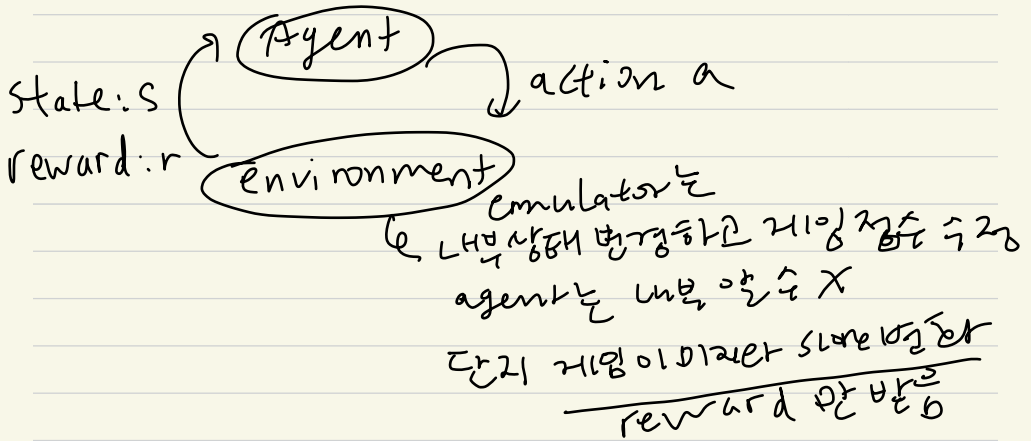 Agent
action a
state: s
reward: r
environment
emulator는
내부상태 변경하고 게임 점수 수정
agent는 내부 알 수 X
단지 게임이미지와 score 변화
reward 만 받음